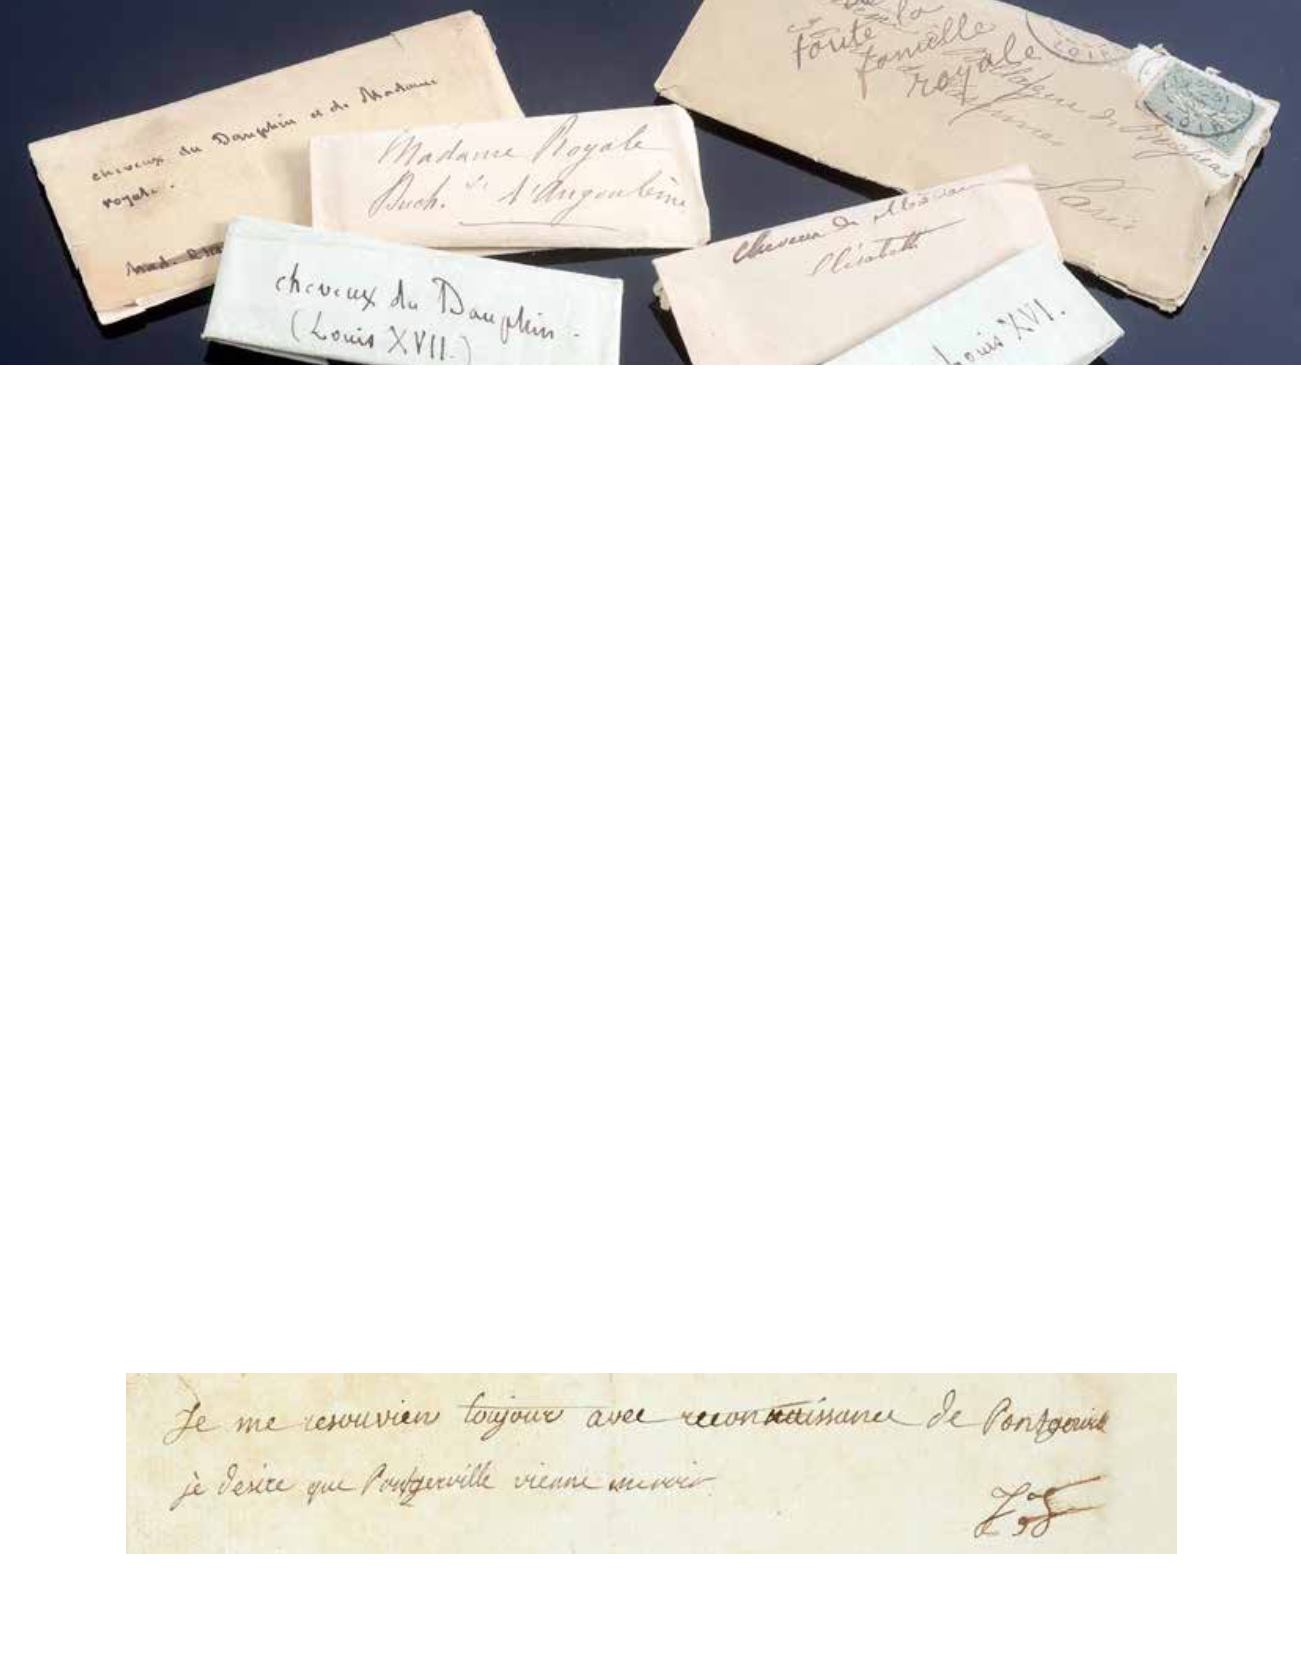 cheveux du Dauphin et de Madame
royale.
Mad.
Madame Royale
Duch. d'Angoulême
cheveux du Dauphin.
(Louis XVII.)
de la
toute
famille
royale
Paris
LOIR
cheveux de Madame
Elisabeth
Louis XVI.
Je me resouvien toujour avec reconnaissance de Pontgerville
je desire que Pontgerville vienne me voir